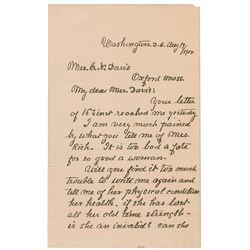 Washington D.C. Aug 17
1900
Mrs. E. N. Davis
Oxford Mass.
My dear Mrs. Davis:
Your letter
of 15" inst received me yesterday
I am very much pained
by what you tell me of Mrs
Rich. It is too bad a fate
for so good a woman-
Will you find it too much
trouble to write me again and
tell me of her physical condition
her health. if she has lost
all her old time strength-
is she an invalid? can she